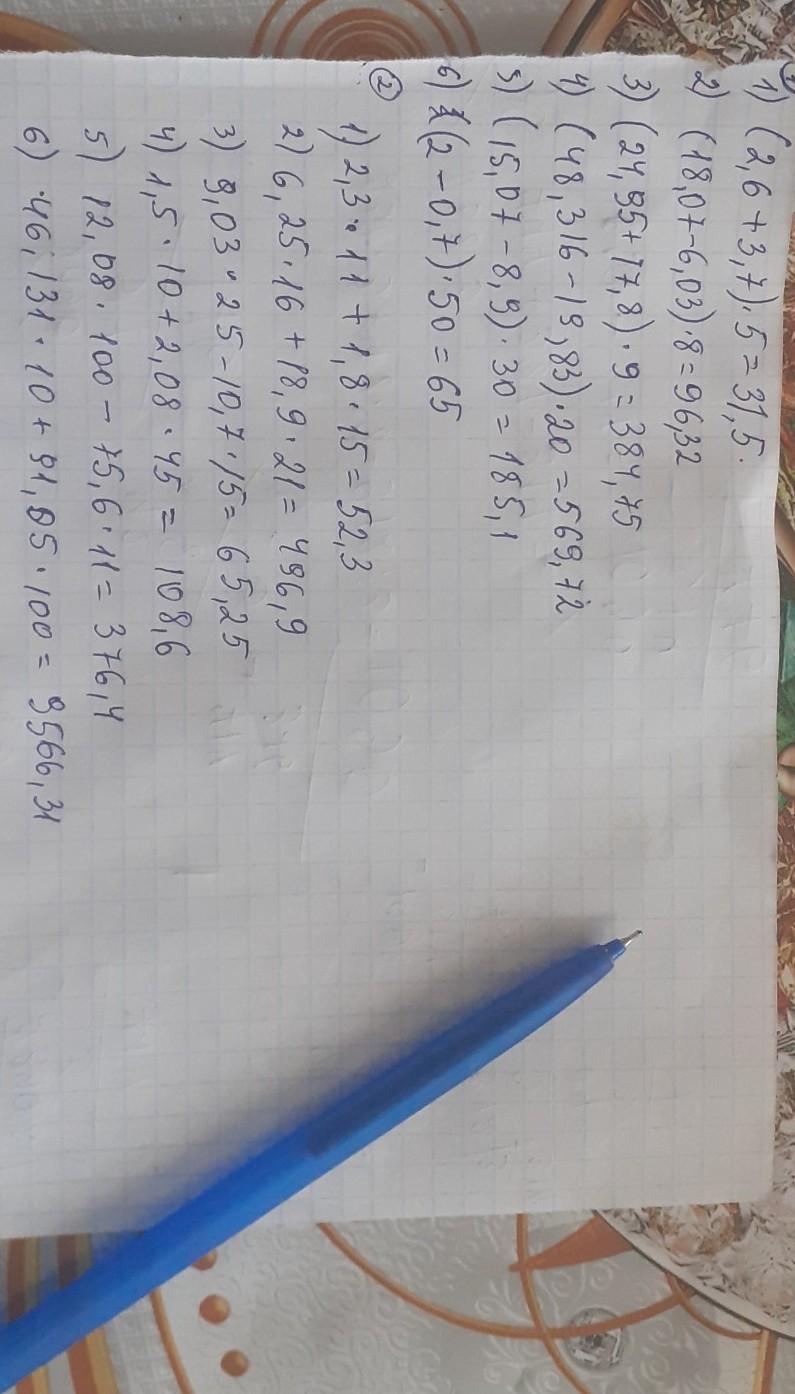 1
1) (2,6 + 3,7)·5 = 31,5.
2) (18,07-6,03)·8=96,32
3) (24,95+17,8)·9 = 384,75
4) (48,316-19,83)·20 = 569,72
5) (15,07-8,9)·30 = 185,1
6) (2-0,7)·50 = 65
2
1) 2,3·11 + 1,8·15 = 52,3
2) 6,25·16 + 18,9·21 = 496,9
3) 9,03·25-10,7·15= 65,25
4) 1,5·10+2,08·45 = 108,6
5) 12,08·100 - 75,6·11 = 376,4
6) 46,131·10 + 91,05·100 = 9566,31